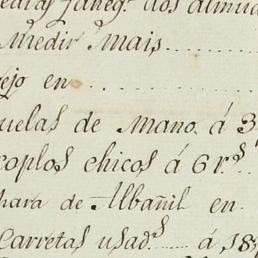 medir Mais
ejo en
uelas de Mano. á 3
coplos chicos á 6 r.s
hara de Albañil en
Carretas usad.s á 18